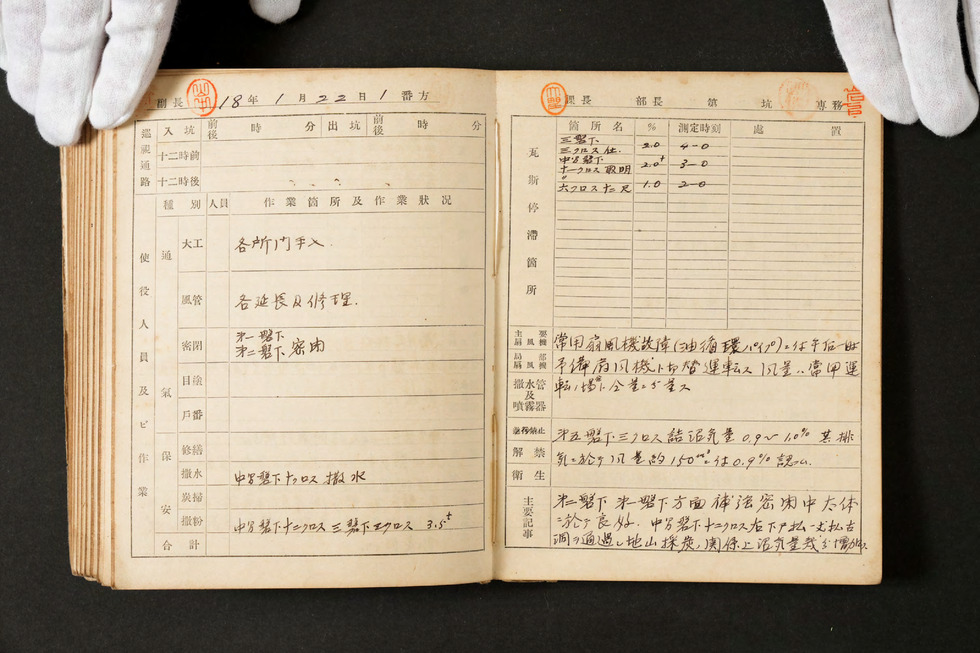 副長 18年 1月22日 1番方
巡視通路 入坑 前後 時 分 出坑 前後 時 分
十二時前
十二時後
使役人員及ビ作業
種別 人員 作業箇所及作業狀況
通氣
大工 各所門手入
風管 各延長及修理.
密閉 第一盤下
第二盤下 密閉
目塗
戸番
保安
修繕
撒水 中号盤下十クロス 撒水
炭掃
撒粉 中号盤下十二クロス 三盤下 クロス 3.5t
合計
課長 部長 第 坑 専務
瓦斯停滯箇所
箇所名 % 測定時刻 處置
三盤下
三クロス仕 2.0 4-0
中号盤下
十一クロス 2.0+ 3-0
〃
六クロス十二尺 1.0 2-0
主要扇風機
局部扇風機
撒水管及噴霧器
常用扇風機故障(油循環パイプ)ニ付午后一時
予備扇風機ト切替運転ス 風量ハ常用運
転ノ場合ト
解禁
衛生
第五盤下三クロス詰沼気量0.9~1.0% 其排
気ニ於テ風量約150m³ニ付0.9%認ム.
主要記事
第二盤下 第一盤下方面 密閉中大体
ニ於テ良好. 中号盤下十二クロス右下
洞ヲ通過シ地山採炭ノ関係上沼気量